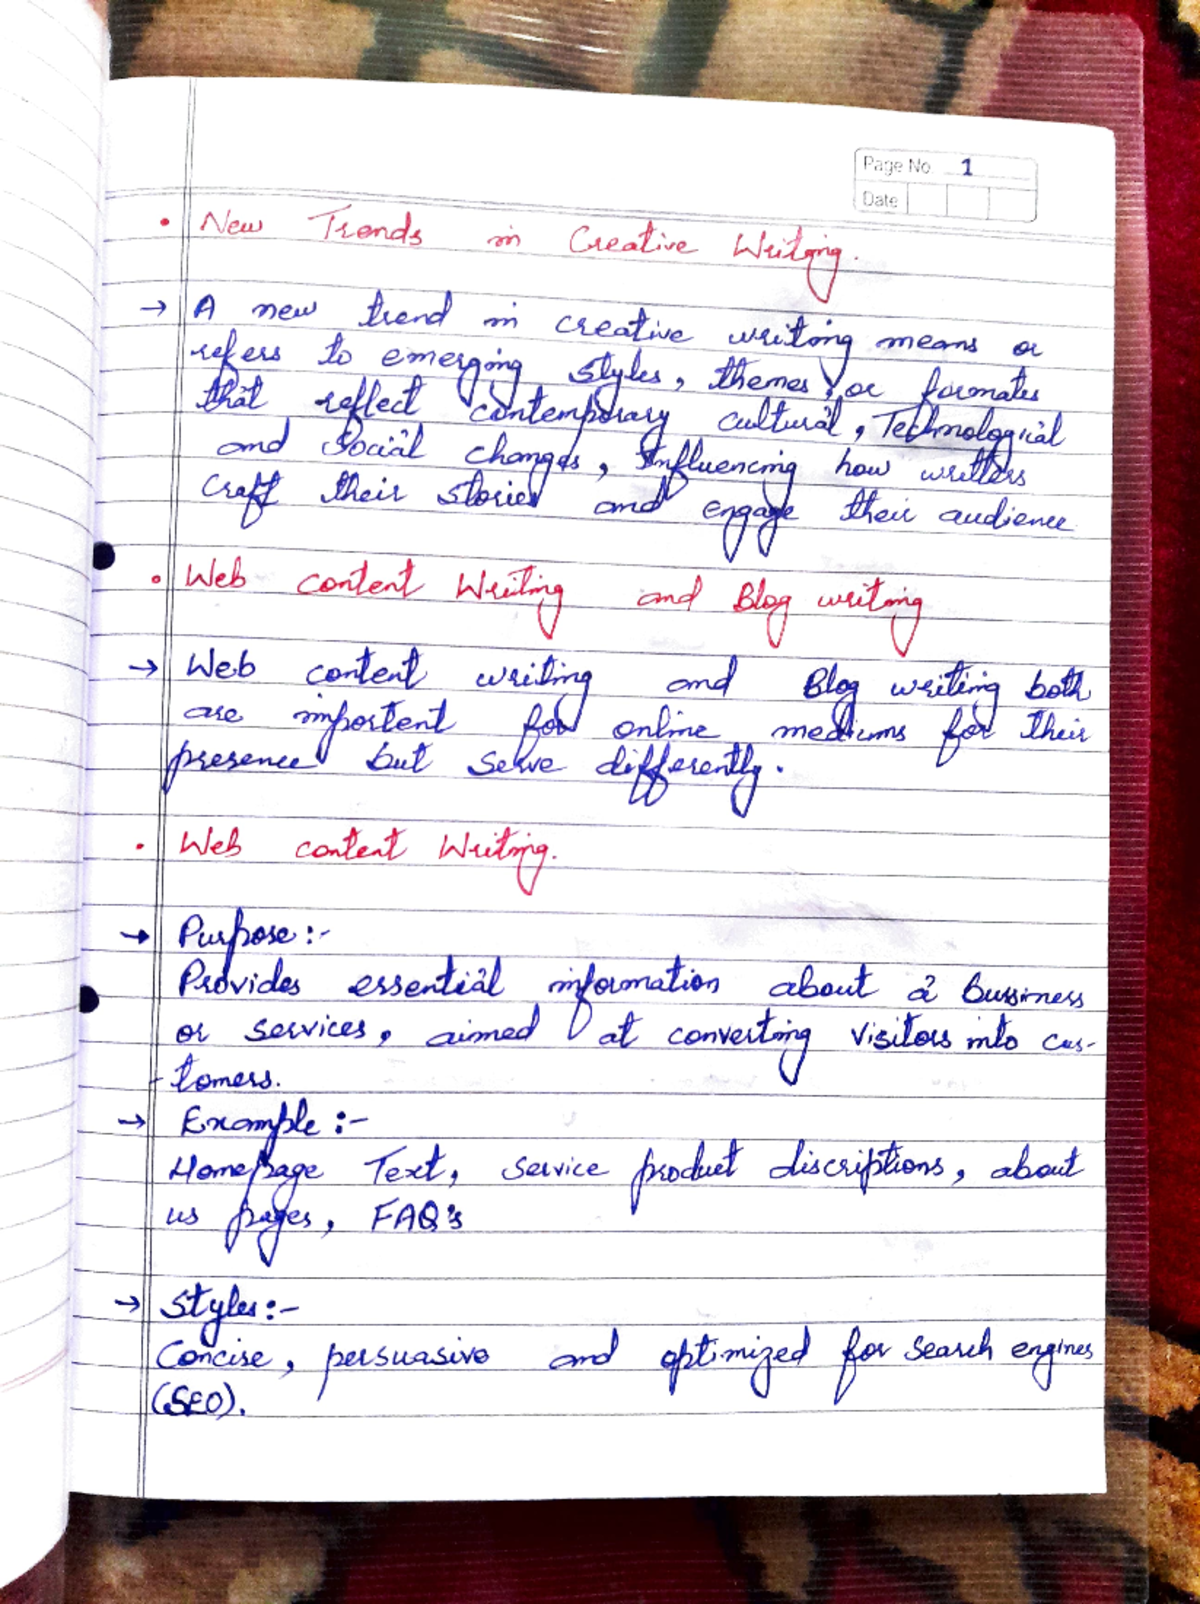 Page No. 1
Date
• New Trends in Creative Writing.
→ A new trend in creative writing means or
refers to emerging styles, themes, or formates
that reflect contemporary cultural, Technological
and Social changes, Influencing how writters
craft their stories and engage their audience
• Web content Writing and Blog writing
→ Web content writing and Blog writing both
are importent for online mediums for their
presence but serve differently.
• Web content Writing.
→ Purpose:-
Provides essential information about a bussiness
or services, aimed at converting visitors into cus-
-tomers.
→ Example:-
Homepage Text, service product discriptions, about
us pages, FAQ's
→ Styles:-
Concise, persuasive and optimized for search engines
(SEO).